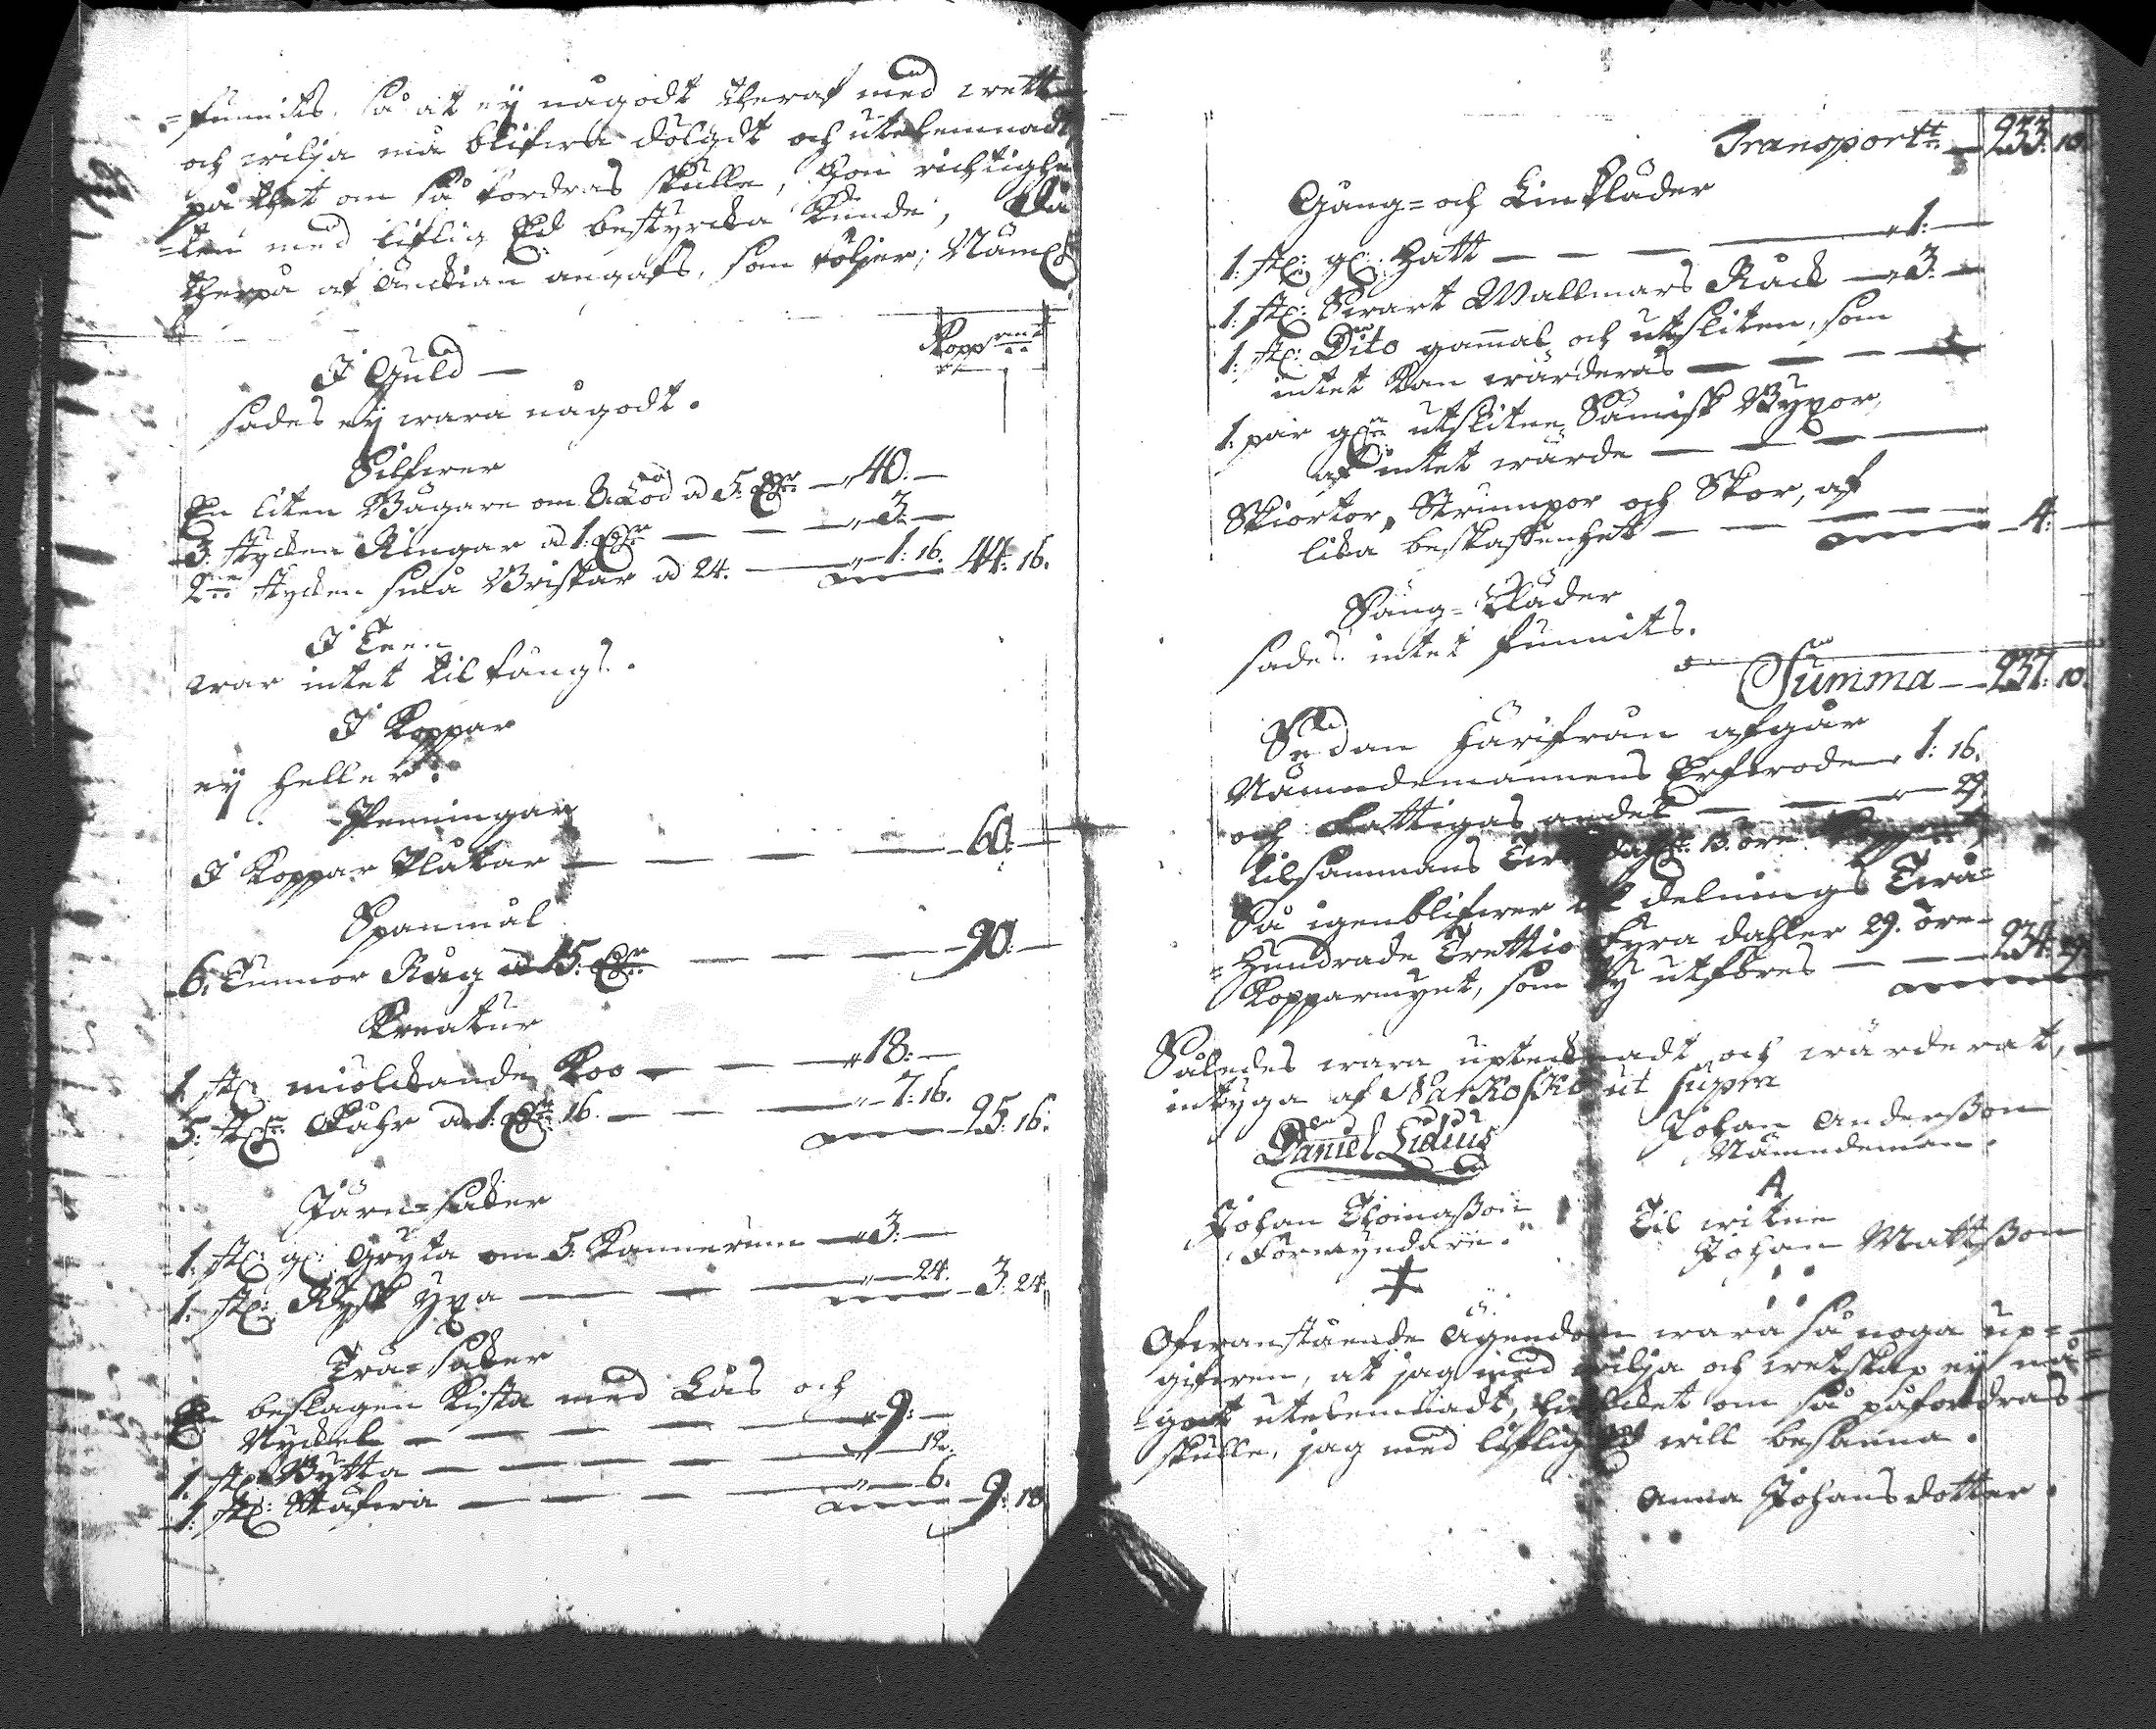 =funnits, så at ej något theraf med wett
och wilja må blifwa döldt och utelemnadt,
på thet om så fordras skulle, hon richtighe
=ten med liflig Ed bestyrcka kunde, då
therpå af Enckian angafs, som följer; Näml:
Kopp mt
I Guld —
sades ej wara någodt.
Silfwer
En liten Bägare om 8. Lod a 5. Dr — „ 40. —
3. stycken Ringar a 1. Dr — — — „ 3. —
2ne stycken små Briskar a 24. — „ 1: 16. 44: 16.
I Teen
war intet til fångs.
I Koppar
ej heller.
Penningar
I Koppar Plåtar — — — — 60: —
Spanmål
6. Tunnor Råg a 15. Dr — — — 90: —
Kreatur
1. st: miölckande Koo — — — „ 18: —
5. st: Fåhr a 1. Dr 16. — — — „ 7: 16. 25: 16.
Järn=saker
1. st: gl: Gryta om 5. Kannerum — „ 3: —
1. st: Rysk yxa — — — „ 24. 3: 24.
Trä=saker
En beslagen Kista med Lås och
Nyckel — — — — „ 9: —
1. st: Bytta — — — — „ 12.
1. st: Stäfwa — — — — „ 6. 9: 18.
Transportt — 233: 10.
Gång= och Linkläder
1. st: gl: Hatt — — — „ 1: —
1. st: Swart Wallmars Råck — „ 3: —
1. st: Dito gammal och utsliten, som
intet kan wärderas — — — —
1. par gl: utslitne Sämisk Byxor,
af intet wärde — — — —
Skiortor, Strumpor och Skor, af
lika beskaffenhet — — — — 4: —
Säng=Kläder
sades intet funnits.
Summa — 237: 10.
Sedan härifrån afgår
Nämndemannens Arfwode 1: 16.
och Fattigas andel — — — 29
tilsammans Twå dahl: 13. öre
Så igenblifwer til delnings Twå=
=Hundrade Trettio Fyra dahler 29. öre
Kopparmynt, som hy utföres — — 234: 29.
Således wara uptecknadt och wärderat,
intyga af Narkoski ut supra
Daniel Lidius
Johan Andersson
Nämndeman.
A
Johan Thomasson
Förmyndare.
Til witne
Johan Mattsson
Ofwanstående Ägendom wara så noga up=
gifwen, at jag med wilja och wetskap ej nå=
=got utelemnadt, hwilcket om så påfordras
skulle, jag med liflig Ed will besanna.
Anna Johansdotter.